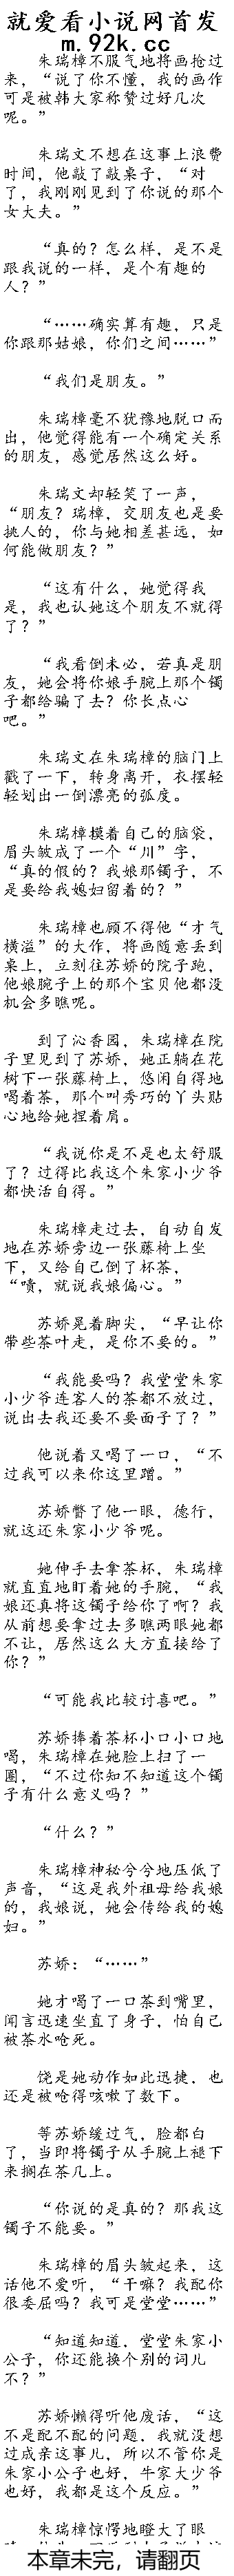 就爱看小说网首发
m.92k.cc
朱瑞樟不服气地将画抢过
来，“说了你不懂，我的画作
可是被韩大家称赞过好几次
呢。”
朱瑞文不想在这事上浪费
时间，他敲了敲桌子，“对
了，我刚刚见到了你说的那个
女大夫。”
“真的？怎么样，是不是
跟我说的一样，是个有趣的
人？”
“……确实算有趣，只是
你跟那姑娘，你们之间……”
“我们是朋友。”
朱瑞樟毫不犹豫地脱口而
出，他觉得能有一个确定关系
的朋友，感觉居然这么好。
朱瑞文却轻笑了一声，
“朋友？瑞樟，交朋友也是要
挑人的，你与她相差甚远，如
何能做朋友？”
“这有什么，她觉得我
是，我也认她这个朋友不就得
了？”
“我看倒未必，若真是朋
友，她会将你娘手腕上那个镯
子都给骗了去？你长点心
吧。”
朱瑞文在朱瑞樟的脑门上
戳了一下，转身离开，衣摆轻
轻划出一倒漂亮的弧度。
朱瑞樟摸着自己的脑袋，
眉头皱成了一个“川”字，
“真的假的？我娘那镯子，不
是要给我媳妇留着的？”
朱瑞樟也顾不得他“才气
横溢”的大作，将画随意丢到
桌上，立刻往苏娇的院子跑，
他娘腕子上的那个宝贝他都没
机会多瞧呢。
到了沁香园，朱瑞樟在院
子里见到了苏娇，她正躺在花
树下一张藤椅上，悠闲自得地
喝着茶，那个叫秀巧的丫头贴
心地给她捏着肩。
“我说你是不是也太舒服
了？过得比我这个朱家小少爷
都快活自得。”
朱瑞樟走过去，自动自发
地在苏娇旁边一张藤椅上坐
下，又给自己倒了杯茶，
“啧，就说我娘偏心。”
苏娇晃着脚尖，“早让你
带些茶叶走，是你不要的。”
“我能要吗？我堂堂朱家
小少爷连客人的茶都不放过，
说出去我还要不要面子了？”
他说着又喝了一口，“不
过我可以来你这里蹭。”
苏娇瞥了他一眼，德行，
就这还朱家小少爷呢。
她伸手去拿茶杯，朱瑞樟
就直直地盯着她的手腕，“我
娘还真将这镯子给你了啊？我
从前想要拿过去多瞧两眼她都
不让，居然这么大方直接给了
你？”
“可能我比较讨喜吧。”
苏娇捧着茶杯小口小口地
喝，朱瑞樟在她脸上扫了一
圈，“不过你知不知道这个镯
子有什么意义吗？”
“什么？”
朱瑞樟神秘兮兮地压低了
声音，“这是我外祖母给我娘
的，我娘说，她会传给我的媳
妇。”
苏娇：“……”
她才喝了一口茶到嘴里，
闻言迅速坐直了身子，怕自己
被茶水呛死。
饶是她动作如此迅捷，也
还是被呛得咳嗽了数下。
等苏娇缓过气，脸都白
了，当即将镯子从手腕上褪下
来搁在茶几上。
“你说的是真的？那我这
镯子不能要。”
朱瑞樟的眉头皱起来，这
话他不爱听，“干嘛？我配你
很委屈吗？我可是堂堂……”
“知道知道，堂堂朱家小
公子，你还能换个别的词儿
不？”
苏娇懒得听他废话，“这
不是配不配的问题，我就没想
过成亲这事儿，所以不管你是
朱家小公子也好，牛家大少爷
也好，我都是这个反应。”
朱瑞樟惊愕地瞪大了眼
本章未完，请翻页